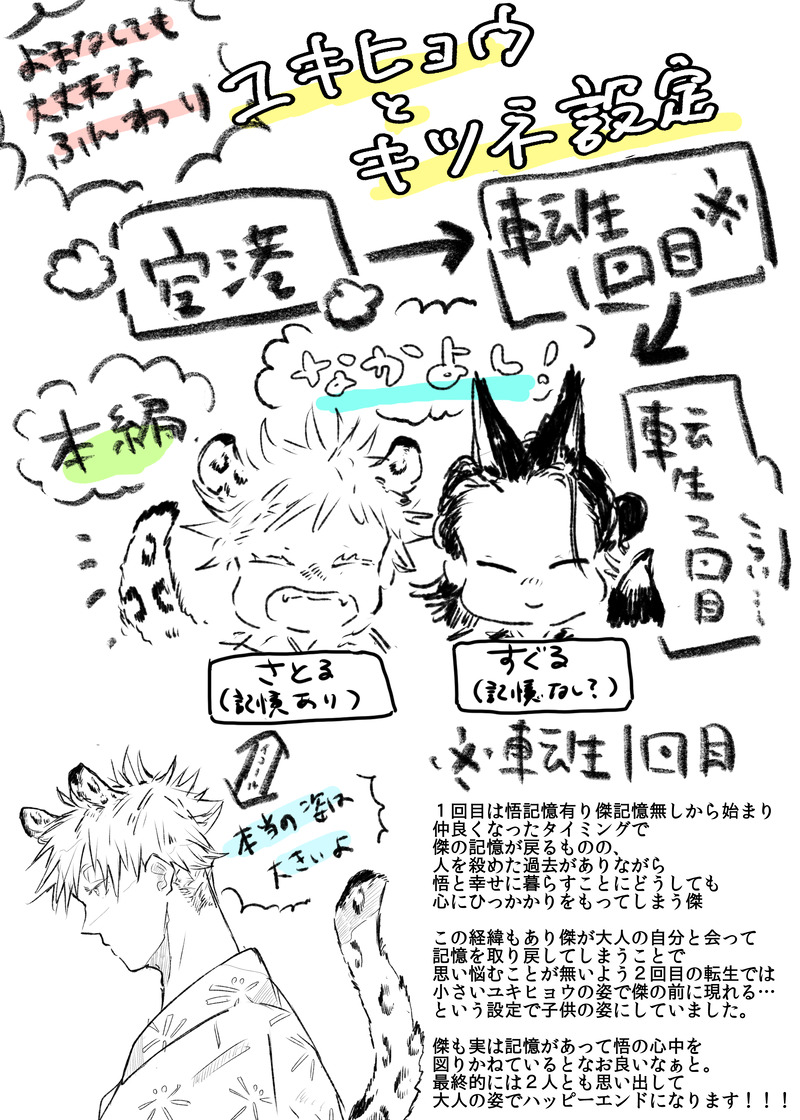 よまなくても
大丈夫な
ふんわり
ユキヒョウ
と
キツネ設定
空港
転生
1回目
※
なかよし!
本編
転生2回目
こっちいま
さとる
(記憶あり)
すぐる
(記憶なし?)
イコール
本当の姿は
大きいよ
※転生1回目
1回目は悟記憶有り傑記憶無しから始まり
仲良くなったタイミングで
傑の記憶が戻るものの、
人を殺めた過去がありながら
悟と幸せに暮らすことにどうしても
心にひっかかりをもってしまう傑
この経緯もあり傑が大人の自分と会って
記憶を取り戻してしまうことで
思い悩むことが無いよう2回目の転生では
小さいユキヒョウの姿で傑の前に現れる…
という設定で子供の姿にしていました。
傑も実は記憶があって悟の心中を
図りかねているとなお良いなぁと。
最終的には2人とも思い出して
大人の姿でハッピーエンドになります!!!